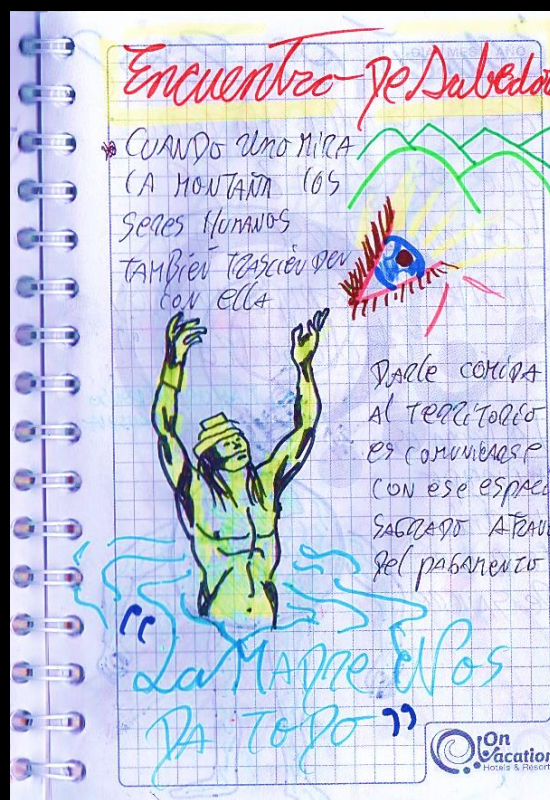 DIA MES AÑO
Encuentro De Sabedor
CUANDO UNO MIRA
LA MONTAÑA LOS
SERES HUMANOS
TAMBIÉN TRASCIENDEN
CON ELLA
DARLE COMIDA
AL TERRITORIO
ES COMUNICARSE
CON ESE ESPACI
SAGRADO ATRAVE
DEL PAGAMENTO
"La MADRE NOS
DA TODO"
On
Vacation
Hotels & Resort